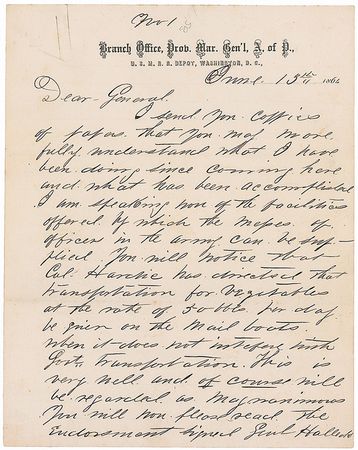 No 1
Branch Office, Prov. Mar. Gen'l, A. of P.,
U. S. M. R. R. DEPOT, WASHINGTON, D. C.,
June 13th 1864
Dear General
I send you coppies
of papers that you may more
fully understand what I have
been doing since coming here
and what has been accomplished
I am speaking now of the facilities
offered by which the messes of
officers in the army can be sup-
plied You will notice that
Col. Hardie has directed that
transportation for vegetables
at the rate of 50 bbls. per day
be given on the mail boats.
when it does not interfere with
Govt. transportation. This is
very well and of course will
be regarded as magnanimous
You will now please read the
Endorsment signed Genl Halleck